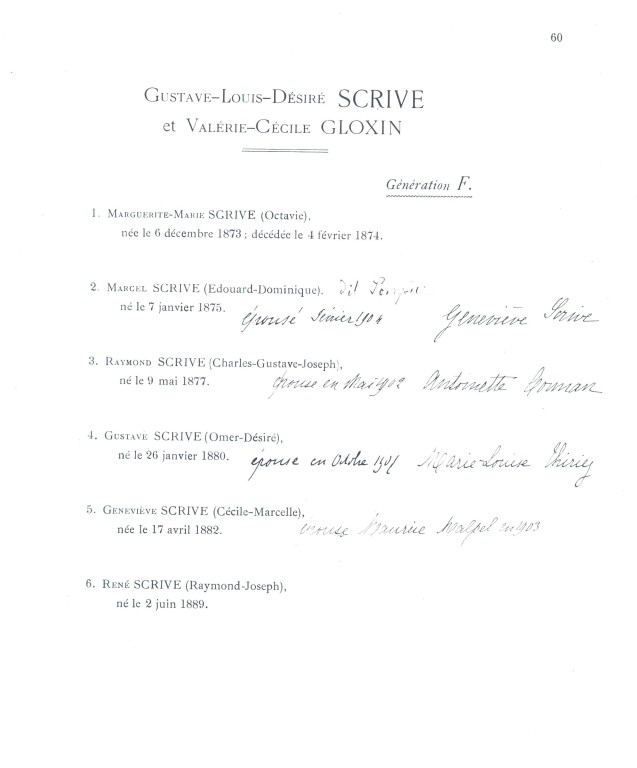 60
GUSTAVE-LOUIS-DÉSIRÉ SCRIVE
et VALÉRIE-CÉCILE GLOXIN
Génération F.
1. MARGUERITE-MARIE SCRIVE (Octavie),
née le 6 décembre 1873 ; décédée le 4 février 1874.
2. MARCEL SCRIVE (Edouard-Dominique). dit
né le 7 janvier 1875. épouse Février 1904 Geneviève Scrive
3. RAYMOND SCRIVE (Charles-Gustave-Joseph),
né le 9 mai 1877. épouse en Mai 1902 Antoinette
4. GUSTAVE SCRIVE (Omer-Désiré),
né le 26 janvier 1880. épouse en Octobre Marie-Louise Thiriez
5. GENEVIÈVE SCRIVE (Cécile-Marcelle),
née le 17 avril 1882. épouse Maurice Malpel en 1903
6. RENÉ SCRIVE (Raymond-Joseph),
né le 2 juin 1889.